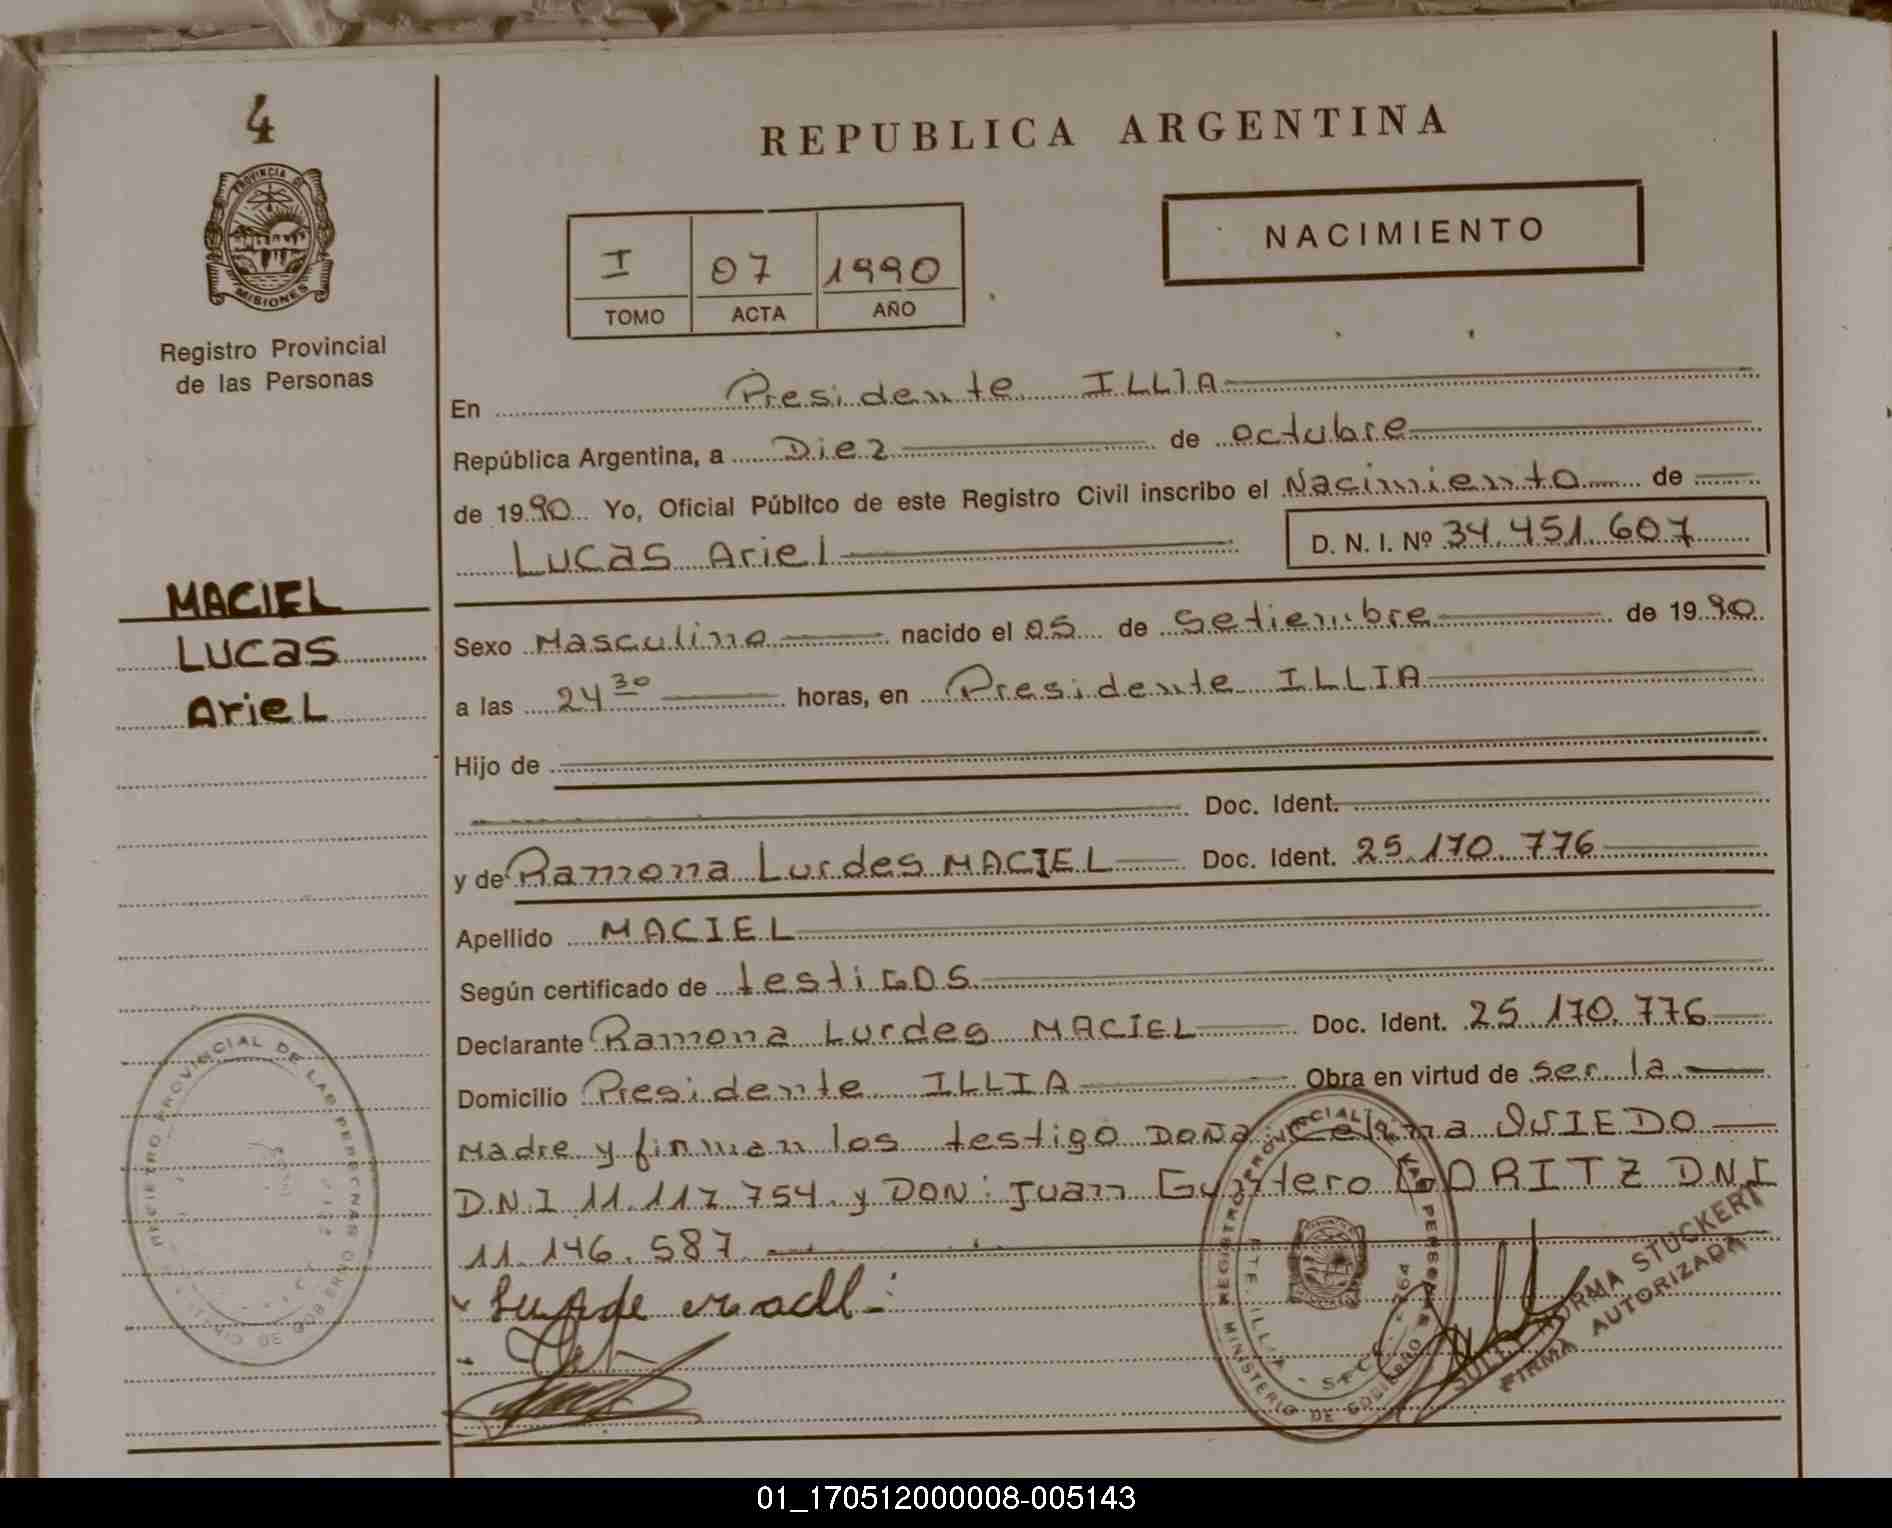 4
PROVINCIA DE
MISIONES
Registro Provincial
de las Personas
MACIEL
Lucas
Ariel
REPUBLICA ARGENTINA
I 07 1990
TOMO ACTA AÑO
NACIMIENTO
En Presidente ILLIA
República Argentina, a Diez de octubre
de 1990 Yo, Oficial Público de este Registro Civil inscribo el Nacimiento de
Lucas Ariel D. N. I. Nº 34.451.607
Sexo Masculino nacido el 05 de Setiembre de 1990
a las 24 30 horas, en Presidente ILLIA
Hijo de
Doc. Ident.
y de Ramona Lurdes MACIEL Doc. Ident. 25.170.776
Apellido MACIEL
Según certificado de testigos
Declarante Ramona Lurdes MACIEL Doc. Ident. 25.170.776
Domicilio Presidente ILLIA Obra en virtud de ser la
Madre y firman los testigo DOÑA: Celina OVIEDO
D.N.I 11.117.754. y DON: Juan DORITZ DNI
11.146.587.
REGISTRO PROVINCIAL DE LAS PERSONAS
MINISTERIO DE GOBIERNO
PTE. ILLIA
NORMA STUCKERT
FIRMA AUTORIZADA
REGISTRO PROVINCIAL DE LAS PERSONAS
01_170512000008-005143